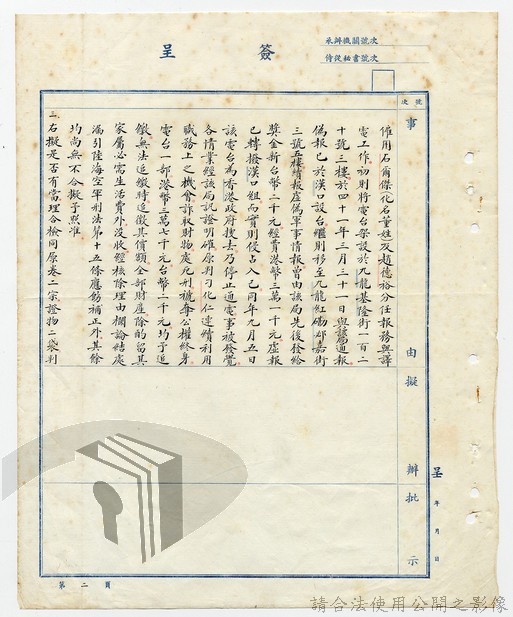 簽呈
承辦機關號次
侍從秘書號次
號次
事由擬辦批示
呈 年 月 日
催用石爾傑化名董姓友趙德裕分任報務與譯
電工作初則將電台架設於九龍基隆街一百二
十號三樓於四十一年三月三十一日與該局通報
偽報已於漢口設台繼則移至九龍紅磡郡嘉街
三號五樓情報虛偽軍事情報曾由該局先後發給
獎金新台幣二千元經費港幣三萬一千元虛報
已轉撥漢口組而實則侵占入己同年九月五日
該電台為香港政府搜去乃停止通電事被發覺
各情業經該局訊證明確原判刁化仁連續利用
職務上之機會詐取財物處死刑褫奪公權終身
電台一部港幣三萬七千元台幣二千元均予追
繳無法追繳時追徵其價額全部財產除酌留其
家屬必需生活費外沒收經核除理由欄論結處
漏引陸海空軍刑法第十五條應飭補正外其餘
均尚無不合擬予照准
三右擬是否有當理合檢同原卷二宗證物二袋判
第二頁
請合法使用公開之影像